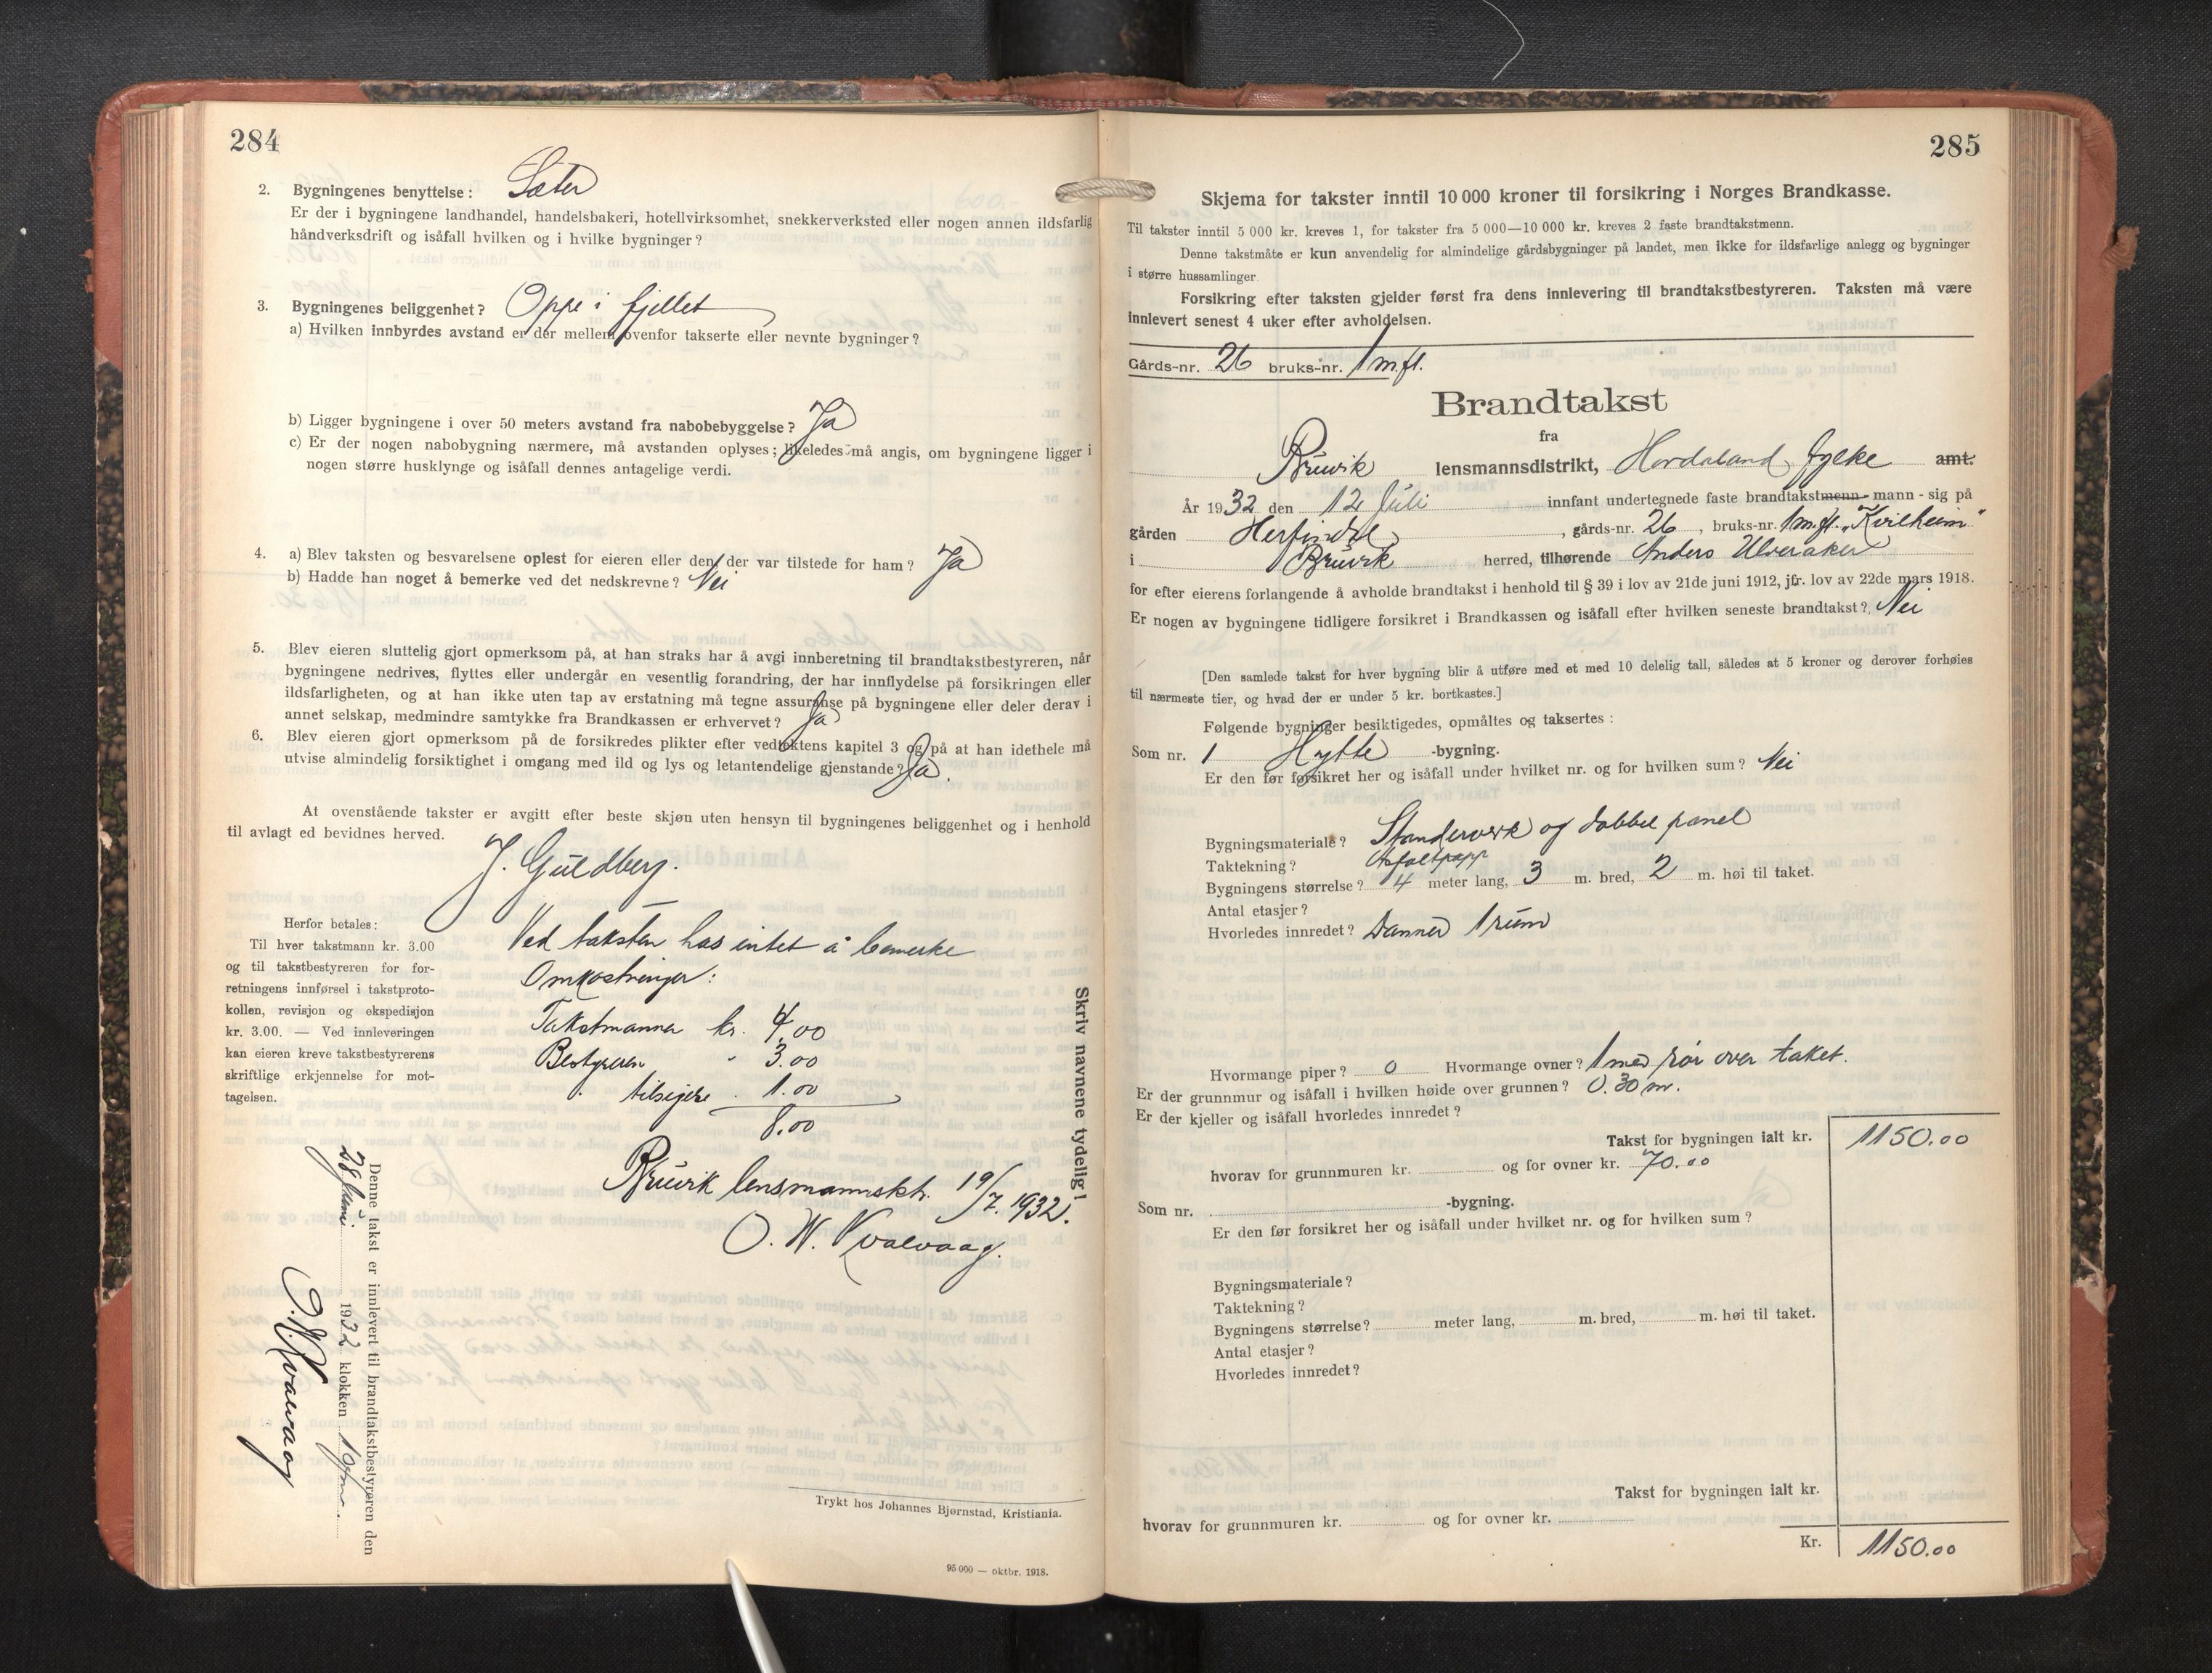 284
2. Bygningenes benyttelse: Sæter
Er der i bygningene landhandel, handelsbakeri, hotellvirksomhet, snekkerverksted eller nogen annen ildsfarlig
håndverksdrift og isåfall hvilken og i hvilke bygninger?
3. Bygningenes beliggenhet? Oppe i fjellet
a) Hvilken innbyrdes avstand er der mellem ovenfor takserte eller nevnte bygninger?
b) Ligger bygningene i over 50 meters avstand fra nabobebyggelse? Ja
c) Er der nogen nabobygning nærmere, må avstanden oplyses; likeledes må angis, om bygningene ligger i
nogen større husklynge og isåfall dennes antagelige verdi.
4. a) Blev taksten og besvarelsene oplest for eieren eller den der var tilstede for ham? Ja
b) Hadde han noget å bemerke ved det nedskrevne? Nei
5. Blev eieren sluttelig gjort opmerksom på, at han straks har å avgi innberetning til brandtakstbestyreren, når
bygningene nedrives, flyttes eller undergår en vesentlig forandring, der har innflydelse på forsikringen eller
ildsfarligheten, og at han ikke uten tap av erstatning må tegne assuranse på bygningene eller deler derav i
annet selskap, medmindre samtykke fra Brandkassen er erhvervet? Ja
6. Blev eieren gjort opmerksom på de forsikredes plikter efter vedtektens kapitel 3 og på at han idethele må
utvise almindelig forsiktighet i omgang med ild og lys og letantendelige gjenstande? Ja.
At ovenstående takster er avgitt efter beste skjøn uten hensyn til bygningenes beliggenhet og i henhold
til avlagt ed bevidnes herved.
J. Guldberg.
Herfor betales:
Til hver takstmann kr. 3.00
og til takstbestyreren for for-
retningens innførsel i takstproto-
kollen, revisjon og ekspedisjon
kr. 3.00. — Ved innleveringen
kan eieren kreve takstbestyrerens
skriftlige erkjennelse for mot-
tagelsen.
Ved taksten has intet å bemerke
Omkostninger:
Takstmannen kr. 4.00
Bestyreren " 3.00
" tilsigere " 1.00
8.00
Bruvik lensmannsktr. 19/7. 1932.
O. W. Kvalvaag.
Skriv navnene tydelig!
Denne takst er innlevert til brandtakstbestyreren den
1932 klokken
O. W. Kvalvaag
Trykt hos Johannes Bjørnstad, Kristiania.
95 000 — oktbr. 1918.
285
Skjema for takster inntil 10 000 kroner til forsikring i Norges Brandkasse.
Til takster inntil 5 000 kr. kreves 1, for takster fra 5 000—10 000 kr. kreves 2 faste brandtakstmenn.
Denne takstmåte er kun anvendelig for almindelige gårdsbygninger på landet, men ikke for ildsfarlige anlegg og bygninger
i større hussamlinger.
Forsikring efter taksten gjelder først fra dens innlevering til brandtakstbestyreren. Taksten må være
innlevert senest 4 uker efter avholdelsen.
Gårds-nr. 26 bruks-nr. 1 m.fl.
Brandtakst
fra
Bruvik lensmannsdistrikt, Hordaland fylke amt.
År 1932 den 12 Juli innfant undertegnede faste brandtakstmenn - mann - sig på
gården Herfindal, gårds-nr. 26, bruks-nr. 1 m.fl. "Kvilheim"
i Bruvik herred, tilhørende Anders Ulveraker
for efter eierens forlangende å avholde brandtakst i henhold til § 39 i lov av 21de juni 1912, jfr. lov av 22de mars 1918.
Er nogen av bygningene tidligere forsikret i Brandkassen og isåfall efter hvilken seneste brandtakst? Nei
[Den samlede takst for hver bygning blir å utføre med et med 10 delelig tall, således at 5 kroner og derover forhøies
til nærmeste tier, og hvad der er under 5 kr. bortkastes.]
Følgende bygninger besiktigedes, opmåltes og taksertes:
Som nr. 1 Hytte -bygning.
Er den før forsikret her og isåfall under hvilket nr. og for hvilken sum? Nei
Bygningsmateriale? Standerverk og dobbel panel
Taktekning? Asfaltpapp
Bygningens størrelse? 4 meter lang, 3 m. bred, 2 m. høi til taket.
Antal etasjer?
Hvorledes innredet? Danner 1 rum
Hvormange piper? 0 Hvormange ovner? 1 med rør over taket.
Er der grunnmur og isåfall i hvilken høide over grunnen? 0.30 m.
Er der kjeller og isåfall hvorledes innredet?
Takst for bygningen ialt kr. 1150.00
hvorav for grunnmuren kr. og for ovner kr. 70.00
Som nr. -bygning.
Er den før forsikret her og isåfall under hvilket nr. og for hvilken sum?
Bygningsmateriale?
Taktekning?
Bygningens størrelse? meter lang, m. bred, m. høi til taket.
Antal etasjer?
Hvorledes innredet?
Takst for bygningen ialt kr.
hvorav for grunnmuren kr. og for ovner kr.
Kr. 1150.00